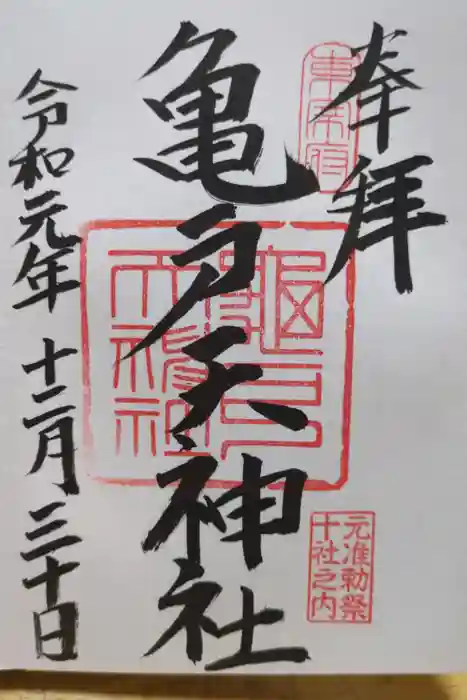 奉拝
東宰府
亀戸天神社
元准勅祭
十社之内
令和元年 十二月 三十日